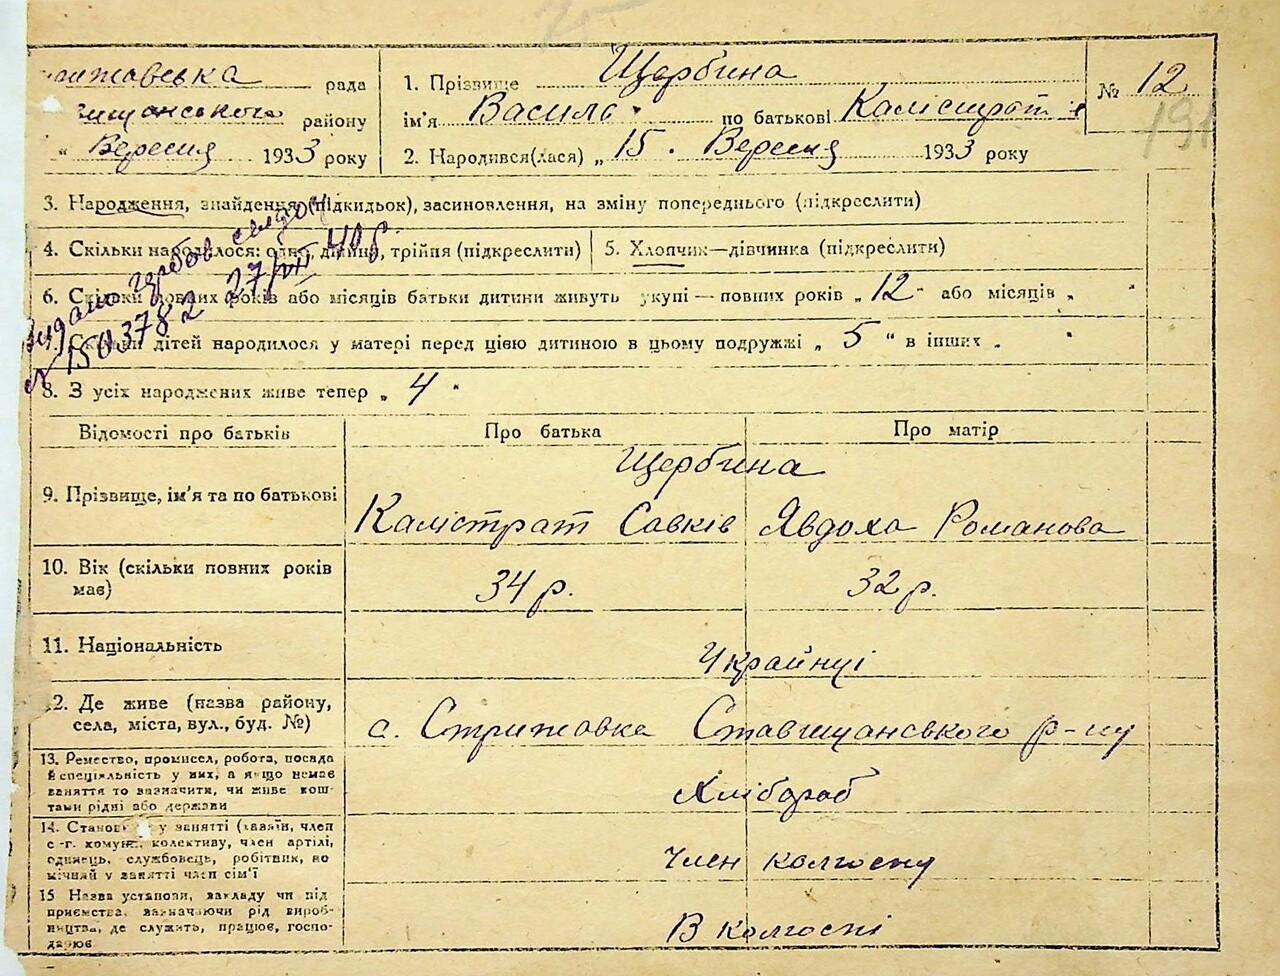 рада
району
Вересня 1933 року
1. Прізвище Щербина
ім'я Василь по батькові Калістрат
2. Народився(лася) „ 15 . Вересня 1933 року
№ 12
191
3. Народження, знайдення (підкидьок), засиновлення, на зміну попереднього (підкреслити)
4. Скільки народилося: одно, двійня, трійпя (підкреслити)
5. Хлопчик—дівчинка (підкреслити)
6. Скільки повних років або місяців батьки дитини живуть укупі—повних років „ 12 " або місяців „ "
7. Скільки дітей народилося у матері перед цією дитиною в цьому подружжі „ 5 " в інших „ "
8. З усіх народжених живе тепер „ 4 "
видано гербов свидоц
№ 150378 2 27/VII 40 р
Відомості про батьків Про батька Про матір
Щербина
9. Прізвище, ім'я та по батькові Калістрат Савків Явдоха Романова
10. Вік (скільки повних років
має) 34 р. 32 р.
11. Національність Українці
12. Де живе (назва району,
села, міста, вул., буд. №) с. Стрижовка Ставищанського р-ну
13. Ремество, промисел, робота, посада
й спеціяльність у них, а якщо немає
заняття то зазначити, чи живе кош-
тами рідні або держави Хлібороб
14. Становище у занятті (хазяїн, член
с.-г. комуни, колективу, член артілі,
одинець, службовець, робітник, по
мічний у занятті член сім'ї член колгоспу
15 Назва установи, закладу чи під
приємства, зазначаючи рід вироб-
ництва, де служить, працює, госпо-
дарює В колгоспі